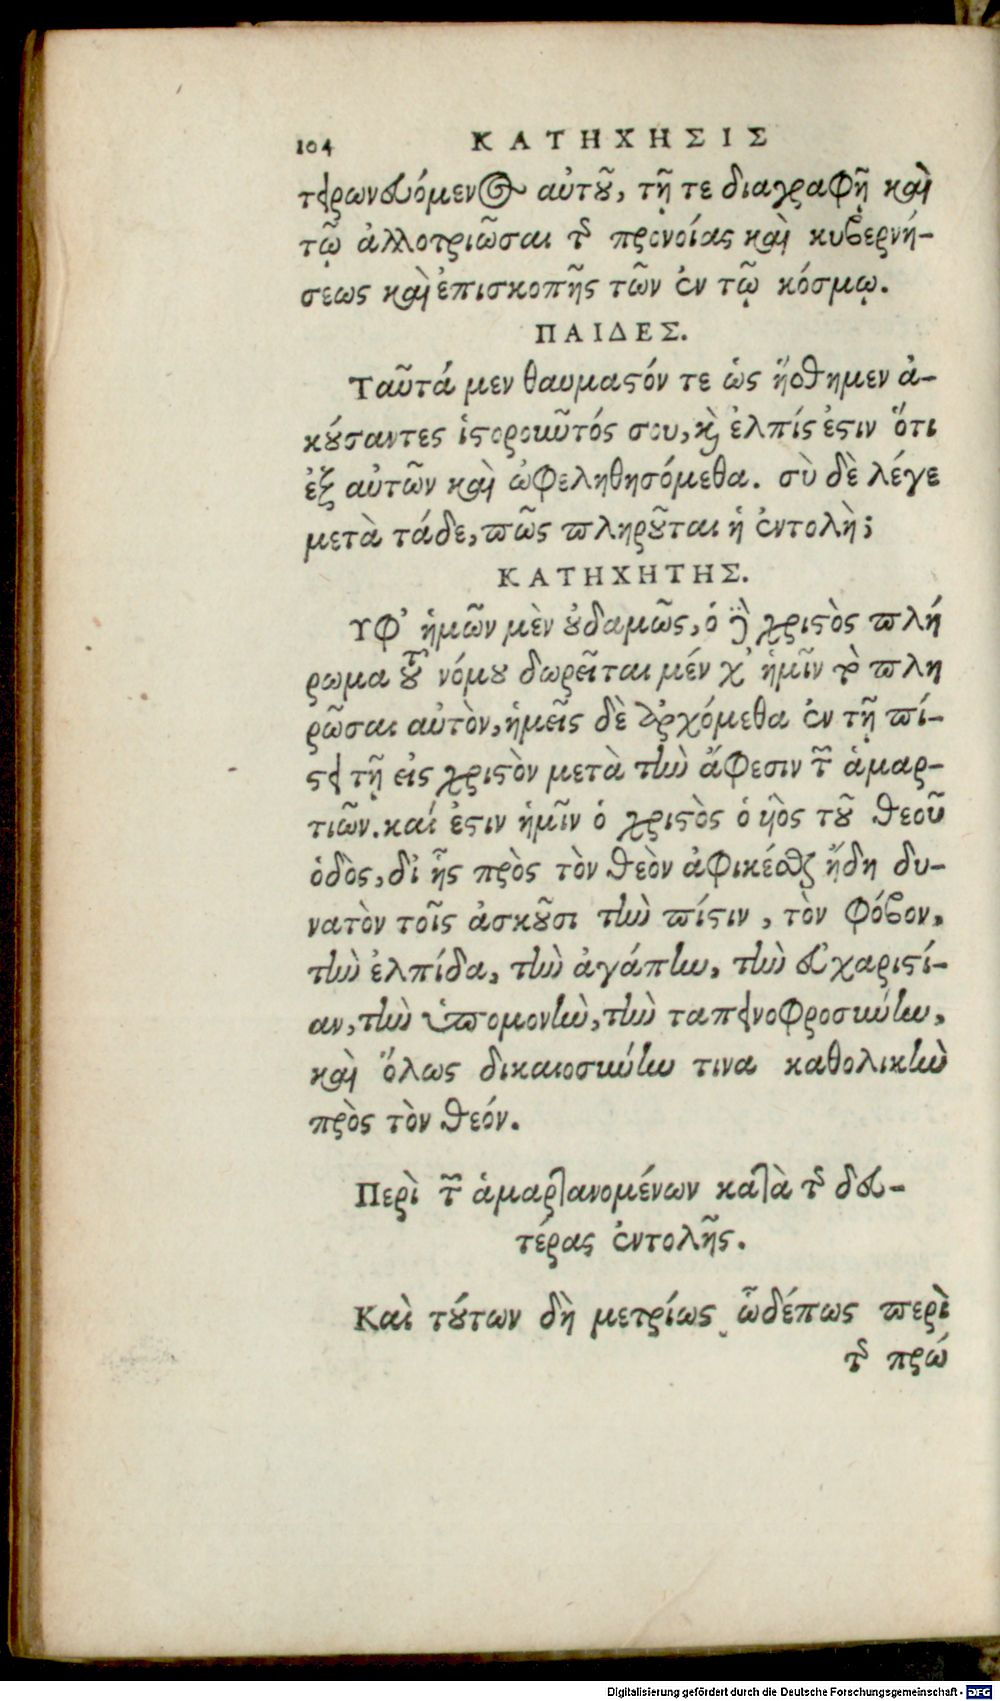 104 ΚΑΤΗΧΗΣΙΣ
αὐτοῦ, τῇ τε διαγραφῇ καὶ
τῷ ἀλλοτριῶσαι τῆς προνοίας καὶ κυβερνή-
σεως καὶ ἐπισκοπῆς τῶν ἐν τῷ κόσμῳ.
ΠΑΙΔΕΣ.
Ταῦτά μεν θαυμαστόν τε ὡς ἥσθημεν ἀ-
κούσαντες ἱστοροῦντός σου, καὶ ἐλπίς ἐστιν ὅτι
ἐξ αὐτῶν καὶ ὠφεληθησόμεθα. σὺ δὲ λέγε
μετὰ τάδε, πῶς πληροῦται ἡ ἐντολὴ;
ΚΑΤΗΧΗΤΗΣ.
Υφ’ ἡμῶν μὲν οὐδαμῶς, ὁ χριστὸς πλή
ρωμα τοῦ νόμου δωρεῖται μέν ἡμῖν τὸ πλη
ρῶσαι αὐτὸν, ἡμεῖς δὲ ἀρχόμεθα ἐν τῇ πί-
στει τῇ εἰς χριστὸν μετὰ τὴν ἄφεσιν τῶν ἁμαρ-
τιῶν. καί ἐστιν ἡμῖν ὁ χριστὸς ὁ υἱὸς τοῦ θεοῦ
ὁδὸς, δι’ ἧς πρὸς τὸν θεὸν ἀφικέσθαι ἤδη δυ-
νατὸν τοῖς ἀσκοῦσι τὴν πίστιν, τὸν φόβον,
τὴν ἐλπίδα, τὴν ἀγάπην, τὴν εὐχαριστί-
αν, τὴν ὑπομονὴν, τὴν ταπεινοφροσύνην,
καὶ ὅλως δικαιοσύνην τινα καθολικὴν
πρὸς τὸν θεόν.
Περὶ τῶν ἁμαρτανομένων κατὰ τῆς δευ-
τέρας ἐντολῆς.
Καὶ τούτων δὴ μετρίως ὧδέπως περὶ
τῆς πρώ
Digitalisierung gefördert durch die Deutsche Forschungsgemeinschaft - DFG